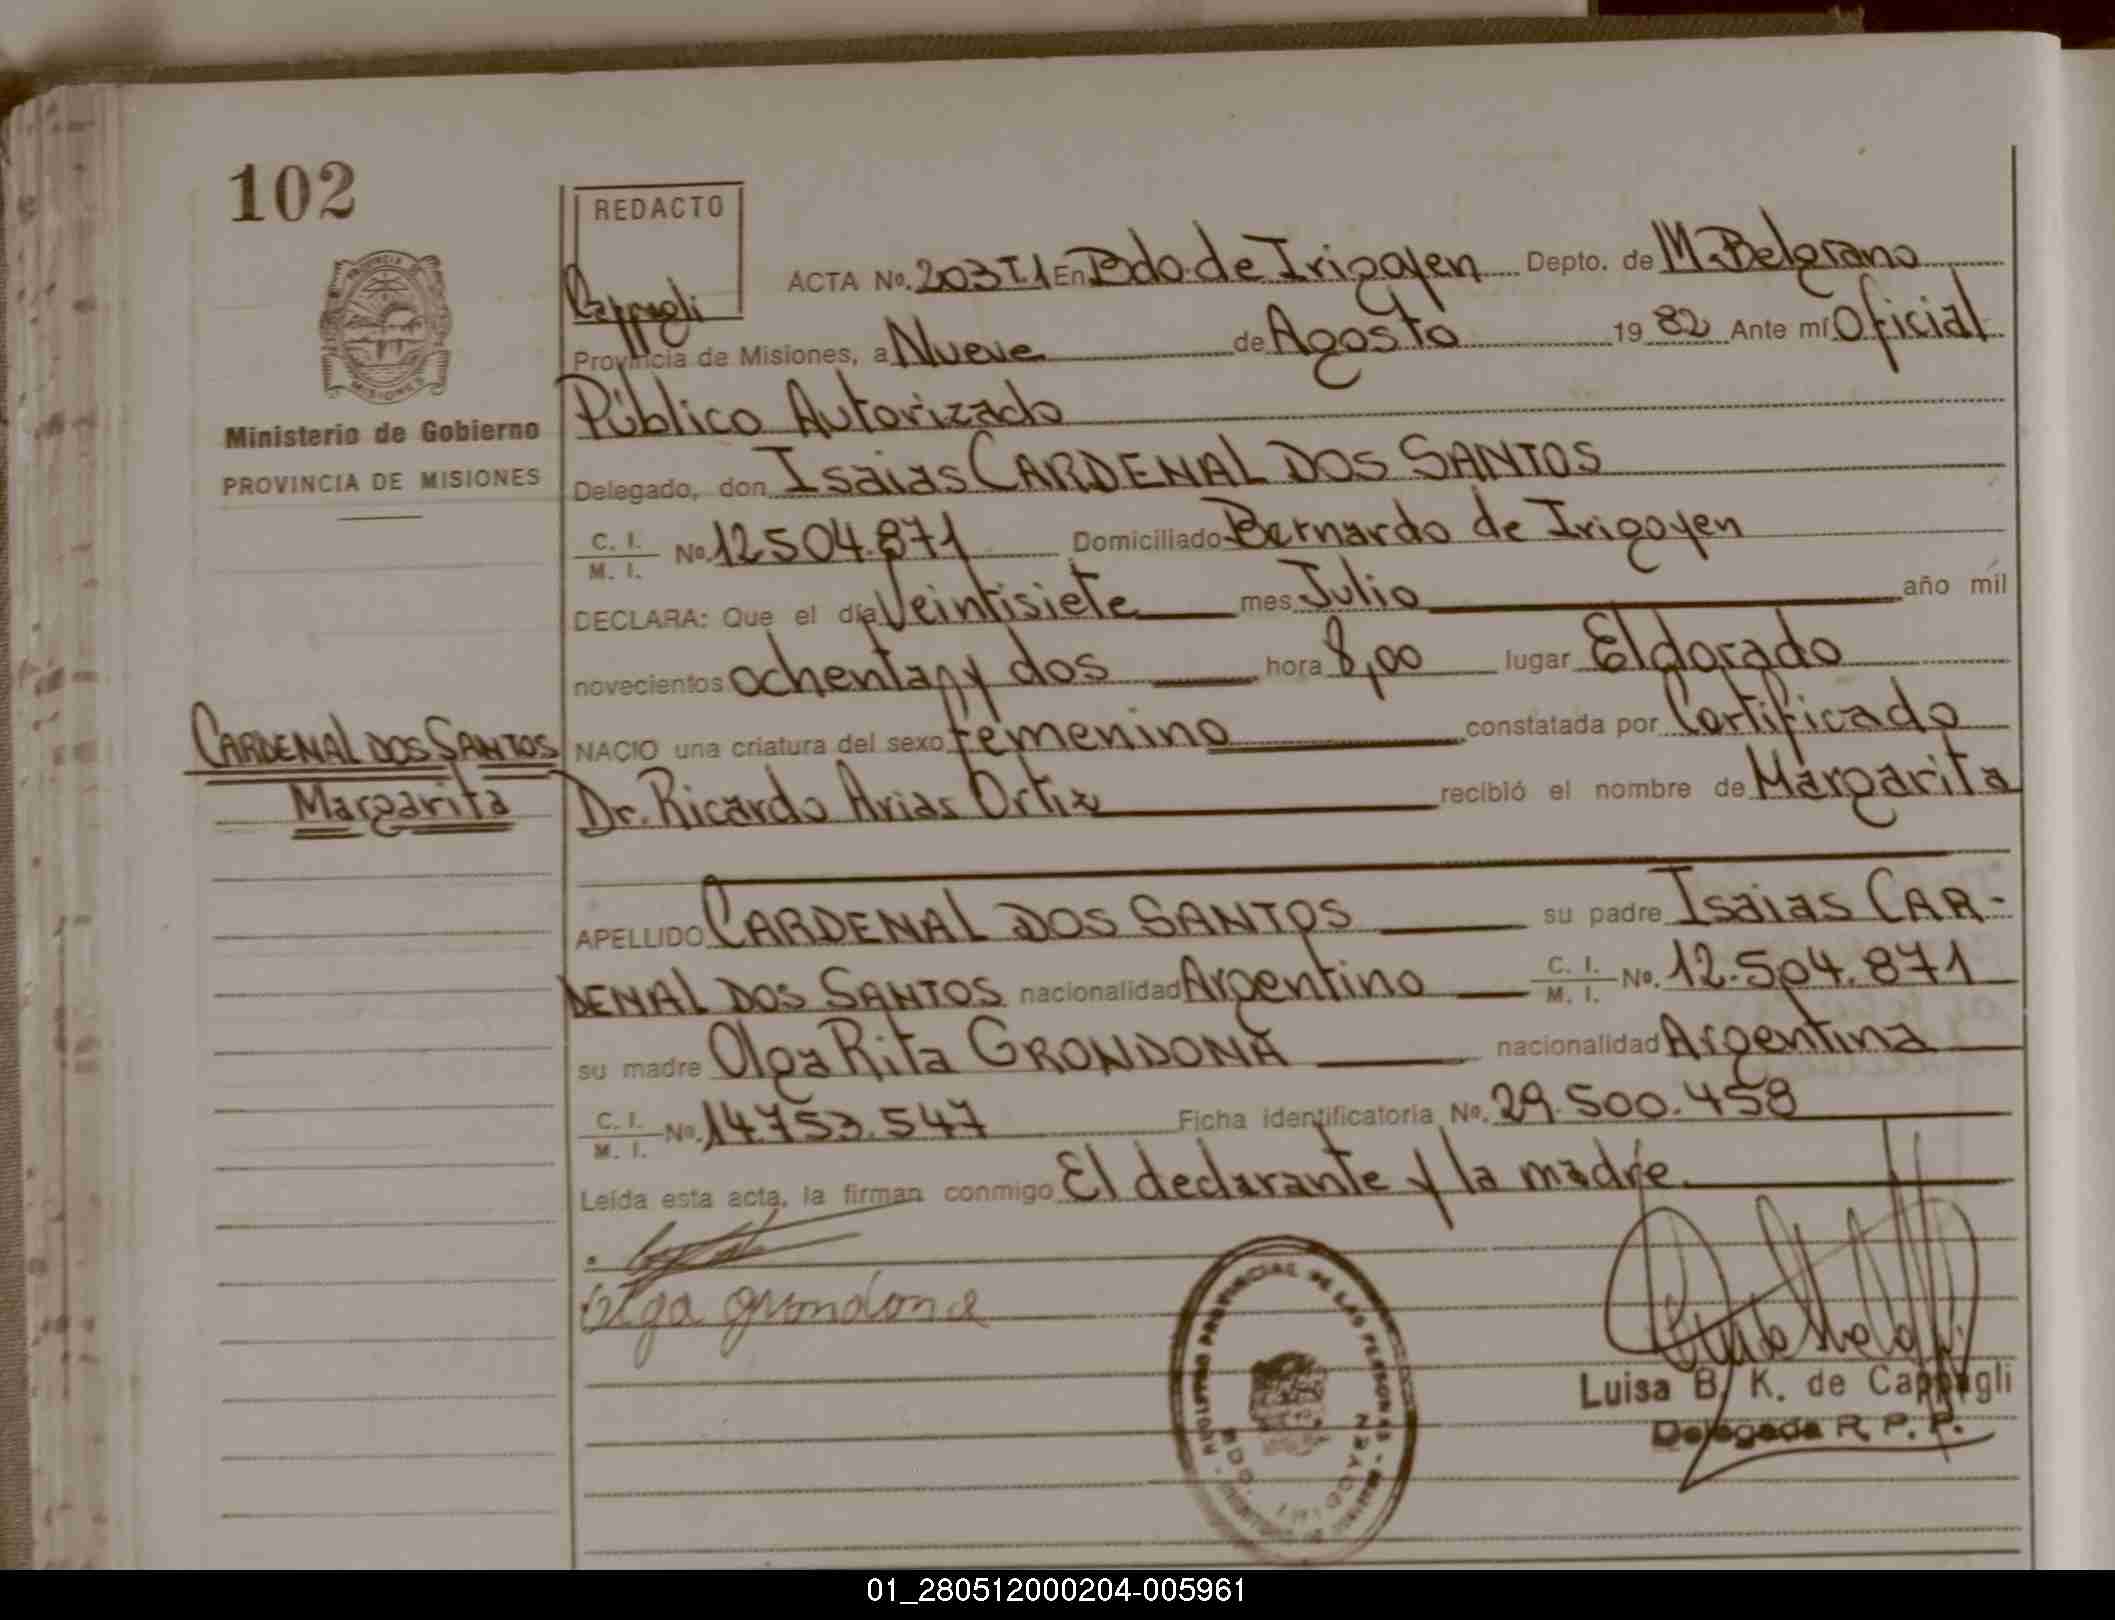 102
REDACTO
Cappagli
ACTA No. 203 T.1 En Bdo. de Irigoyen Depto. de M. Belgrano
Provincia de Misiones, a Nueve de Agosto 19 82 Ante mí Oficial
Público Autorizado
Ministerio de Gobierno
PROVINCIA DE MISIONES
Delegado, don Isaias CARDENAL DOS SANTOS
C. I. / M. I. No. 12504.871 Domiciliado Bernardo de Irigoyen
DECLARA: Que el día Veintisiete mes Julio año mil
novecientos ochenta y dos hora 8,00 lugar Eldorado
NACIO una criatura del sexo femenino constatada por Certificado
CARDENAL DOS SANTOS
Margarita
Dr. Ricardo Arias Ortiz recibió el nombre de Margarita
APELLIDO CARDENAL DOS SANTOS su padre Isaias CAR-
DENAL DOS SANTOS nacionalidad Argentino C. I. / M. I. No. 12.504.871
su madre Olga Rita GRONDONA nacionalidad Argentina
C. I. / M. I. No. 14.753.547 Ficha identificatoria No. 29.500.458
Leída esta acta, la firman conmigo El declarante y la madre.
Olga grondona
REGISTRO PROVINCIAL DE LAS PERSONAS
BDO. IRIGOYEN
Luisa B. K. de Cappagli
Delegada R. P. P.
01_280512000204-005961